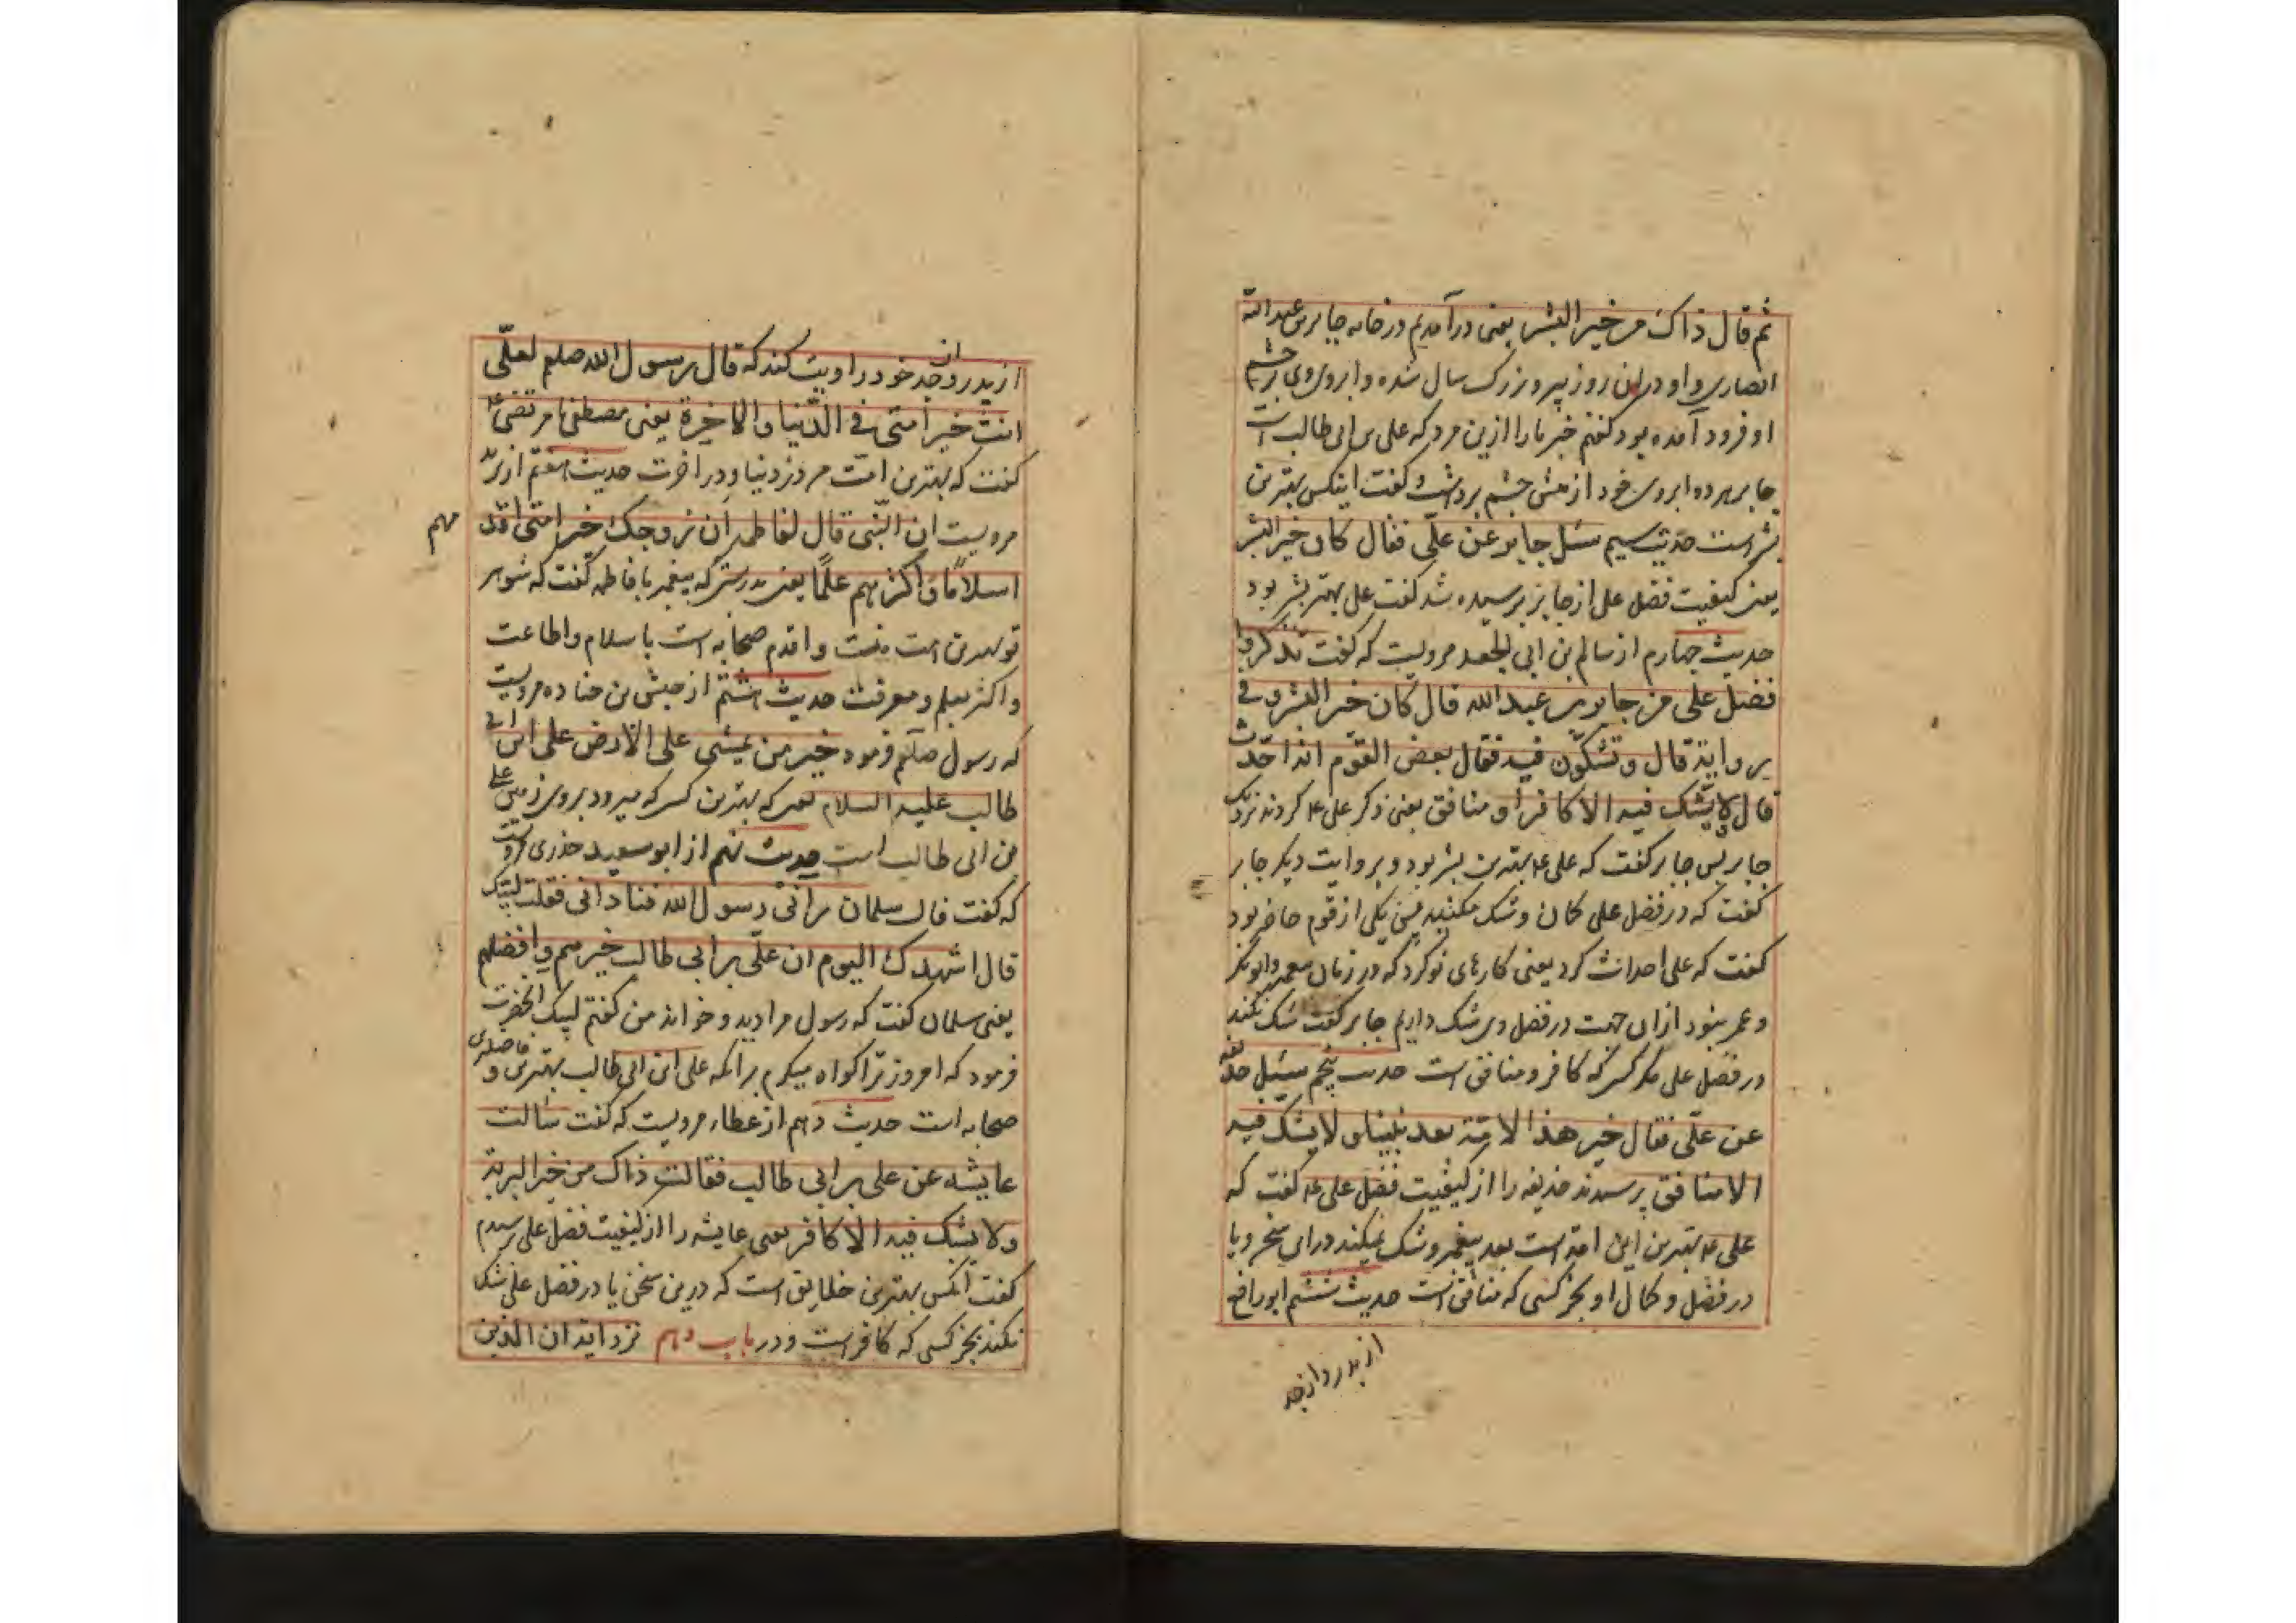 ثم قال ذاک من خیر البشر یعنی درآمدیم در خانه جابر بن عبدالله
انصاری و او دران روز پیر و بزرک سال شده و ابروی وی بر چشم
او فرود آمده بود کفتم خبر ما را ازین مرد که علی بن ابی طالب است
جابر هر دو ابروی خود از چشم برداشت و کفت اینکس بهترین
بشر است حدیث سیم سئل جابر عن علی فقال کان خیر البشر
یعنی کیفیت فضل علی از جابر پرسیده شد کفت علی بهتر بشر بود
حدیث چهارم از سالم بن ابی الجعد مرویست که کفت تذکروا
فضل علی من جابر بن عبد الله قال کان خیر البشر و فی
بروایة قال و تشکون فیه فقال بعض القوم انه احدث
قال لا یشک فیه الا کافر او منافق یعنی ذکر علی ع کردند نزدیک
جابر پس جابر کفت که علی ع بهترین بشر بود و بروایت دیکر جابر
کفت که در فضل علی کمان و شک میکنید یکی از قوم حاضر بود
کفت که علی احداث کرد یعنی کارهای نو کرد که در زمان پیغمبر و ابوبکر
و عمر نبود ازان جهت در فضل وی شک داریم جابر کفت شک نکند
در فضل علی مکر کسی که کافر و منافق است حدیث پنجم سئل حذیفه
عن علی فقال خیر هذا الامة بعد نبینا و لا یشک فیه
الا منافق پرسیدند حذیفه را از کیفیت فضل علی ع کفت که
علی ع بهترین این امة است بعد پیغمبر و شک نمیکند درای سخن و یا
در فضل و کمال او بجز کسی که منافق است حدیث ششم ابو رافع
از پدر و از جد
از پدر و از جد خود روایت کند که قال رسول الله صلعم لعلی
انت خیر امتی فی الدنیا و الاخیرة یعنی مصطفی مرتضی ع
کفت که بهترین امت من در دنیا و در اخرت حدیث هفتم از
مرویست ان النبی قال لفاطمه ان زوجک خیر امتی اقدم
مهم
اسلاما و اکثرهم علما یعنی بدرستی که پیغمبر با فاطمه کفت که شوهر
تو بهترین امت منست و اقدم صحابه است باسلام و اطاعت
و اکثر بعلم و معرفت حدیث هشتم از حبشی بن جناده مرویست
که رسول صلعم فرمود خیر من یمشی علی الارض علی ابن ابی
طالب علیه السلام یعنی که بهترین کسی که میرود بروی زمین علی
بن ابی طالب است حدیث نهم از ابو سعید خدری مرویست
که کفت قال سلمان رانی رسول الله فنادانی فقلت لبیک
قال اشهدک الیوم ان علی بن ابی طالب خیرهم و افضلهم
یعنی سلمان کفت که رسول مرا دید و خواند من کفتم لبیک انحضرت
فرمود که امروز ترا کواه میکیرم برانکه علی ابن ابی طالب بهترین و فاضلترین
صحابه است حدیث دهم از عطاء مرویست که کفت سالت
عایشه عن علی بن ابی طالب فقالت ذاک من خیر البریة
و لا یشک فیه الا کافر یعنی عایشه را از کیفیت فضل علی پرسیدم
کفت آنکس بهترین خلایق است که درین سخن یا در فضل علی شک
نکند بجز کسی که کافر است و در باب دهم نزد ایه ان الذین